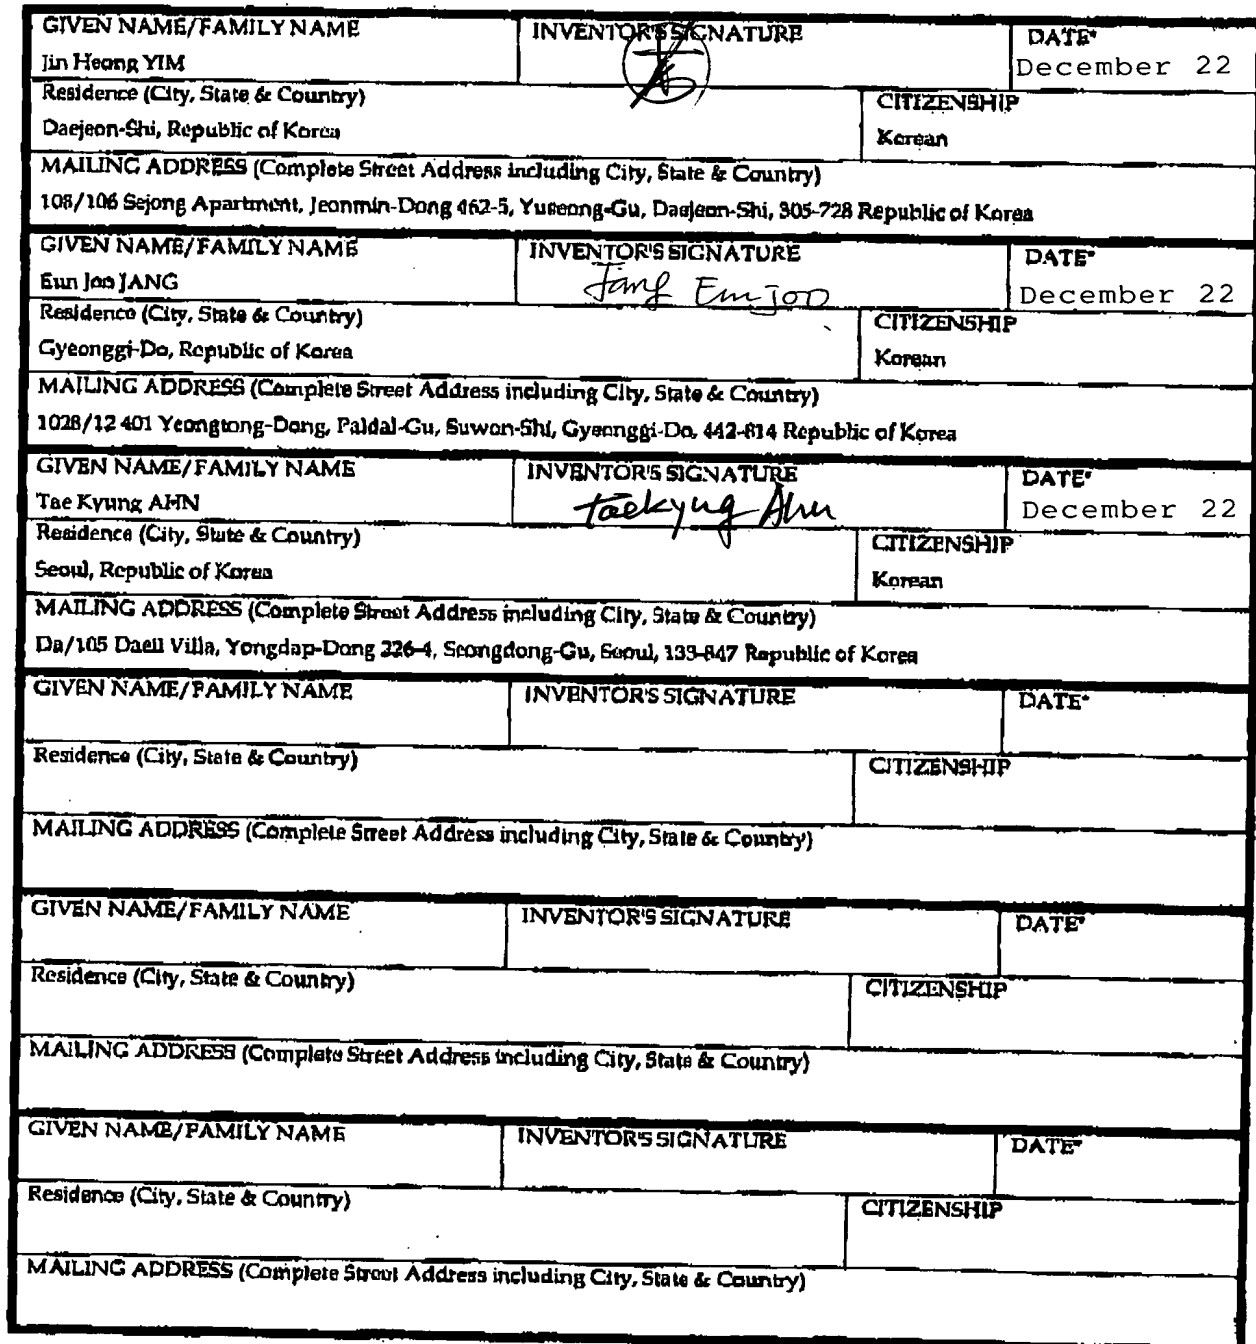 GIVEN NAME/FAMILY NAME INVENTOR'S SIGNATURE DATE*
Jin Heong YIM December 22
Residence (City, State & Country) CITIZENSHIP
Daejeon-Shi, Republic of Korea Korean
MAILING ADDRESS (Complete Street Address including City, State & Country)
108/106 Sejong Apartment, Jeonmin-Dong 462-5, Yuseong-Gu, Daejeon-Shi, 305-728 Republic of Korea
GIVEN NAME/FAMILY NAME INVENTOR'S SIGNATURE DATE*
Eun Joo JANG Jang Eun Joo December 22
Residence (City, State & Country) CITIZENSHIP
Gyeonggi-Do, Republic of Korea Korean
MAILING ADDRESS (Complete Street Address including City, State & Country)
1028/12 401 Yeongtong-Dong, Paldal-Gu, Suwon-Shi, Gyeonggi-Do, 442-814 Republic of Korea
GIVEN NAME/FAMILY NAME INVENTOR'S SIGNATURE DATE*
Tae Kyung AHN taekyug Ahn December 22
Residence (City, State & Country) CITIZENSHIP
Seoul, Republic of Korea Korean
MAILING ADDRESS (Complete Street Address including City, State & Country)
Da/105 Daeil Villa, Yongdap-Dong 226-4, Seongdong-Gu, Seoul, 133-847 Republic of Korea
GIVEN NAME/FAMILY NAME INVENTOR'S SIGNATURE DATE*
Residence (City, State & Country) CITIZENSHIP
MAILING ADDRESS (Complete Street Address including City, State & Country)
GIVEN NAME/FAMILY NAME INVENTOR'S SIGNATURE DATE*
Residence (City, State & Country) CITIZENSHIP
MAILING ADDRESS (Complete Street Address including City, State & Country)
GIVEN NAME/FAMILY NAME INVENTOR'S SIGNATURE DATE*
Residence (City, State & Country) CITIZENSHIP
MAILING ADDRESS (Complete Street Address including City, State & Country)